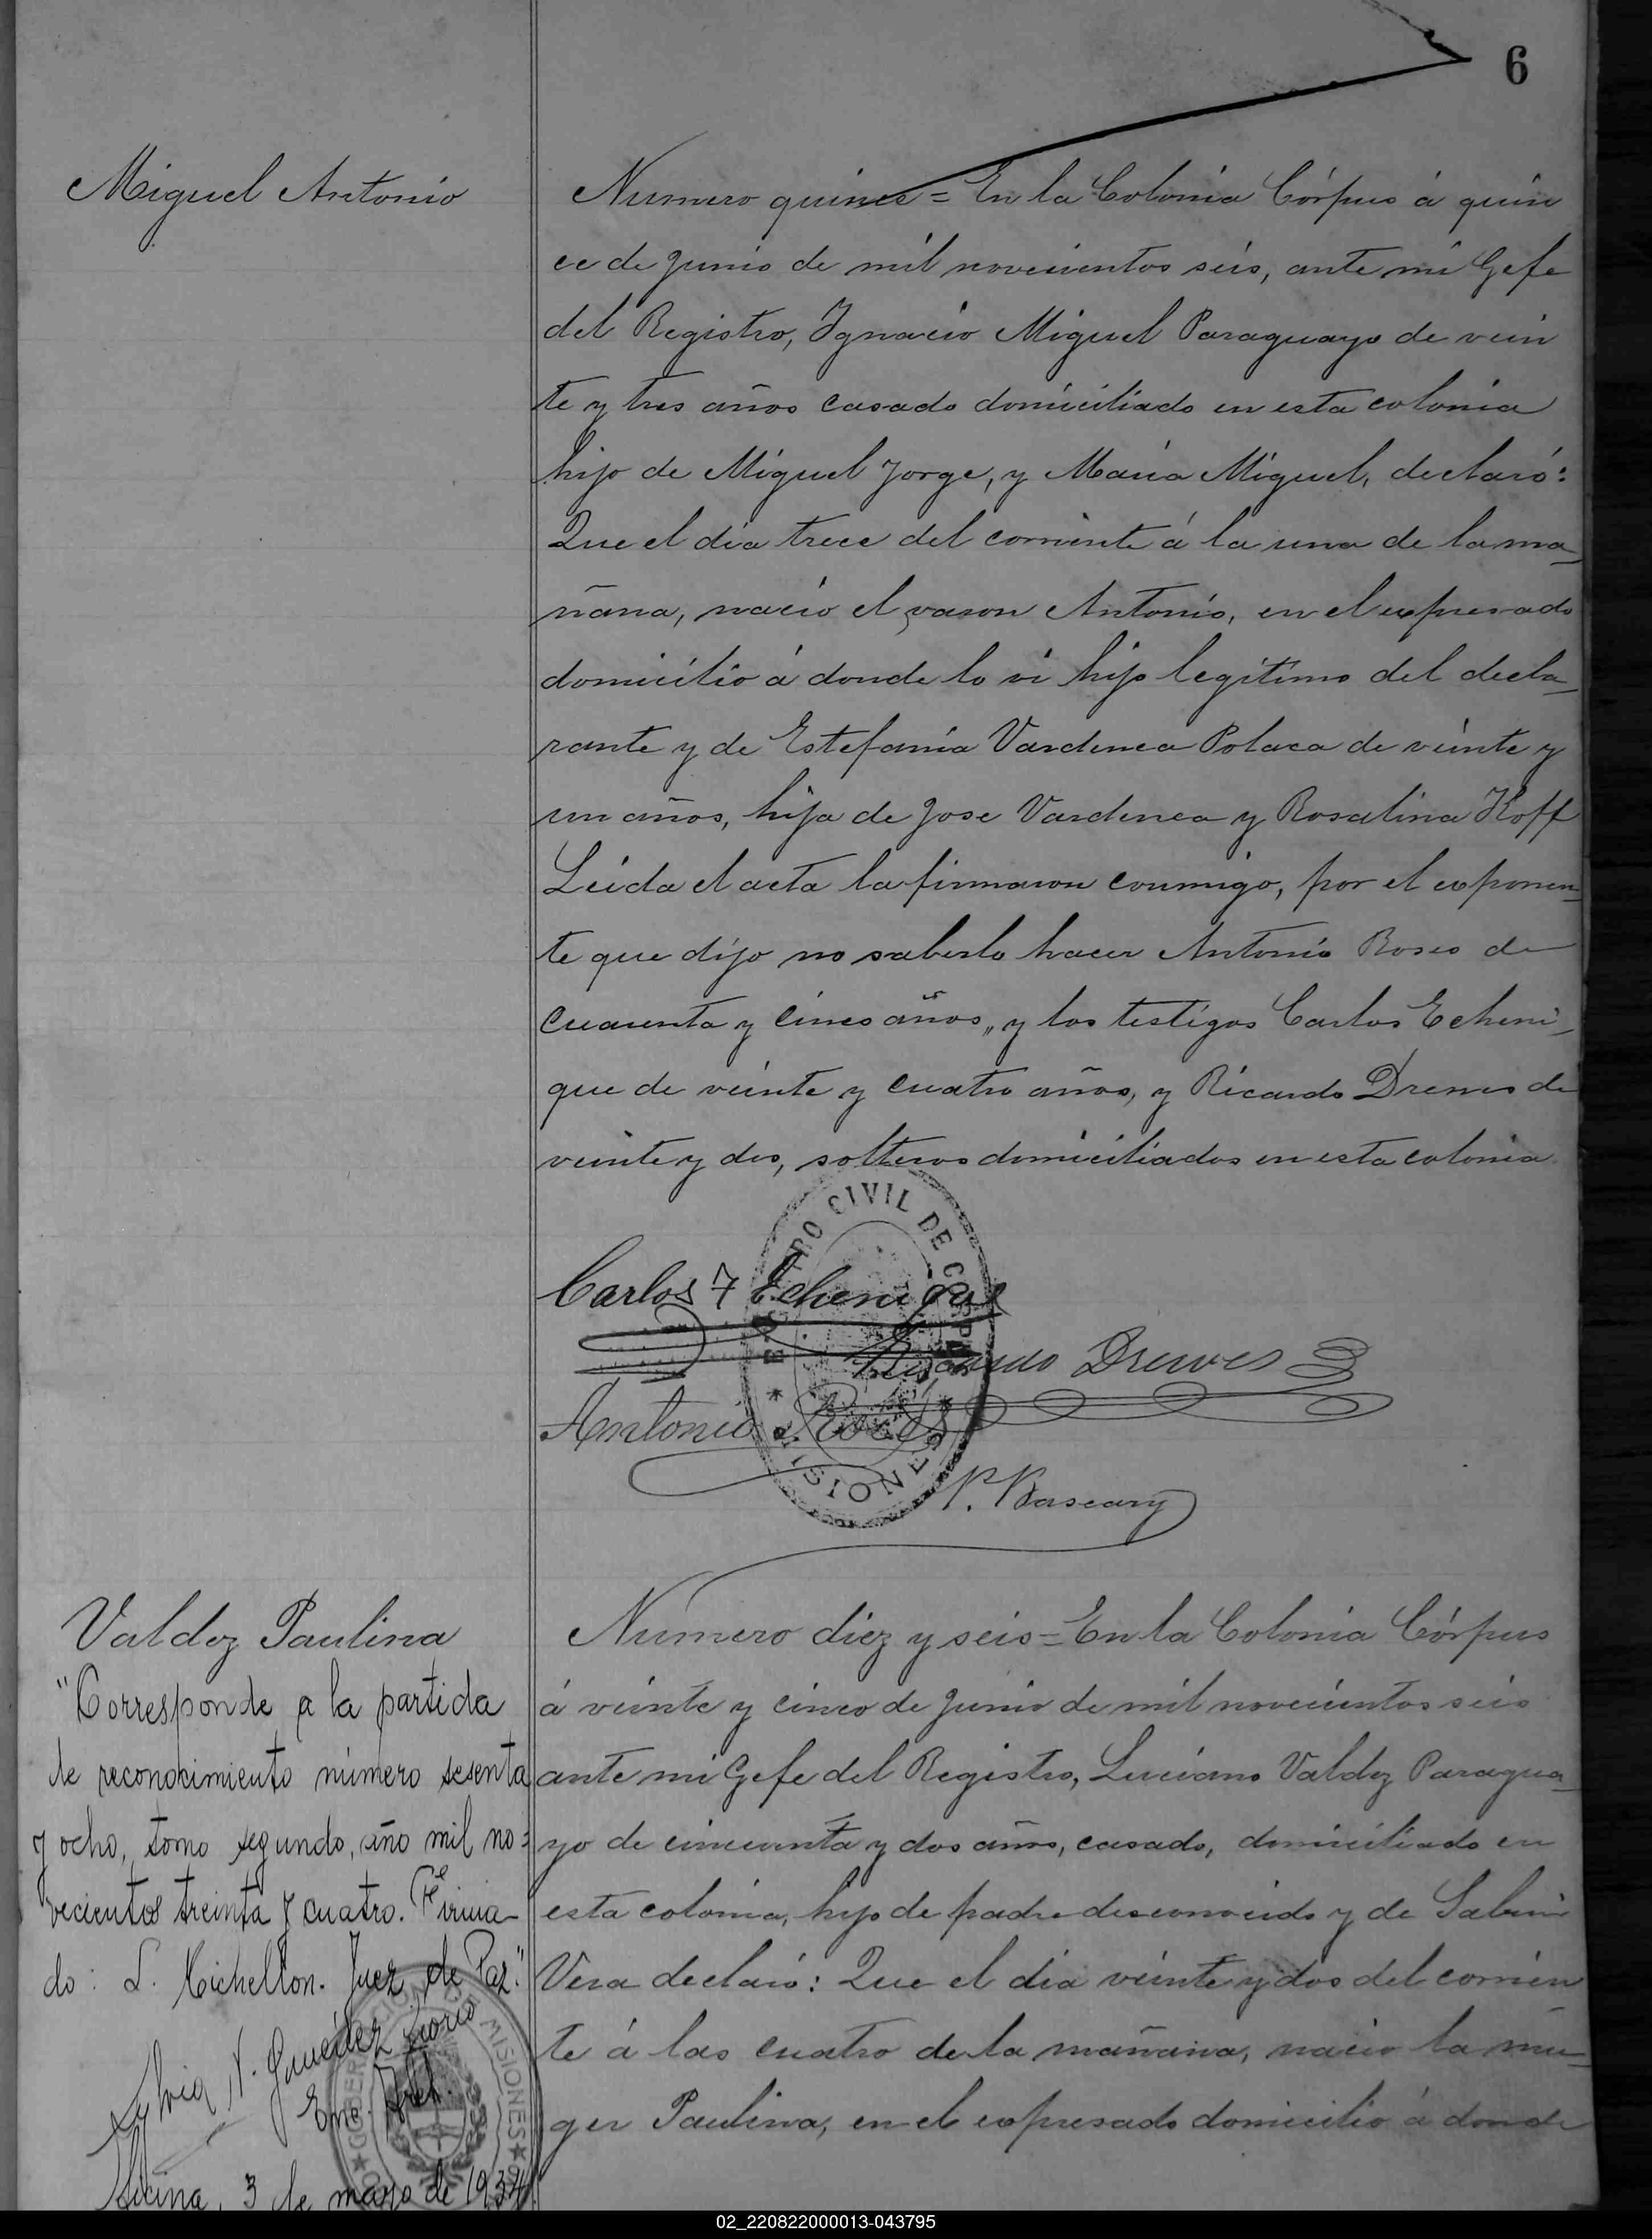 6
Miguel Antonio
Numero quince = En la Colonia Córpus á quin
ce de Junio de mil novecientos seis, ante mi Gefe
del Registro, Ygnacio Miguel Paraguayo de vein
te y tres años casado domiciliado en esta colonia
hijo de Miguel Jorge, y Maria Miguel, declaró:
Que el dia trece del corriente á la una de la ma-
ñana, nació el varon Antonio, en el expresado
domicilio á donde lo vi hijo legítimo del decla-
rante y de Estefania Vardenea Polaca de veinte y
un años, hija de Jose Vardenea y Rosalina Koff
Leida el acta la firmaron conmigo, por el exponen-
te que dijo no saberlo hacer Antonio Roses de
cuarenta y cinco años, y los testigos Carlos Echeni-
que de veinte y cuatro años, y Ricardo Drewes de
veinte y dos, solteros domiciliados en esta colonia
CIVIL DE CORPUS
MISIONES
Carlos F Echenique
Ricardo Drewes
Antonio Roses
P. Bascary
Valdez Paulina
"Corresponde a la partida
de reconocimiento número sesenta
y ocho, tomo segundo, año mil no-
vecientos treinta y cuatro. Firma-
do: L. Michellon. Juez de Paz."
Enc.
3 de mayo de 1934
MISIONES
Número diez y seis = En la Colonia Córpus
á veinte y cinco de Junio de mil novecientos seis
ante mi Gefe del Registro, Luciano Valdez Paragua-
yo de cincuenta y dos años, casado, domiciliado en
esta colonia, hijo de padre desconocido y de Sabina
Vera declaró: Que el dia veinte y dos del corrien
te á las cuatro de la mañana, nació la mu-
ger Paulina, en el expresado domicilio á donde
02_220822000013-043795